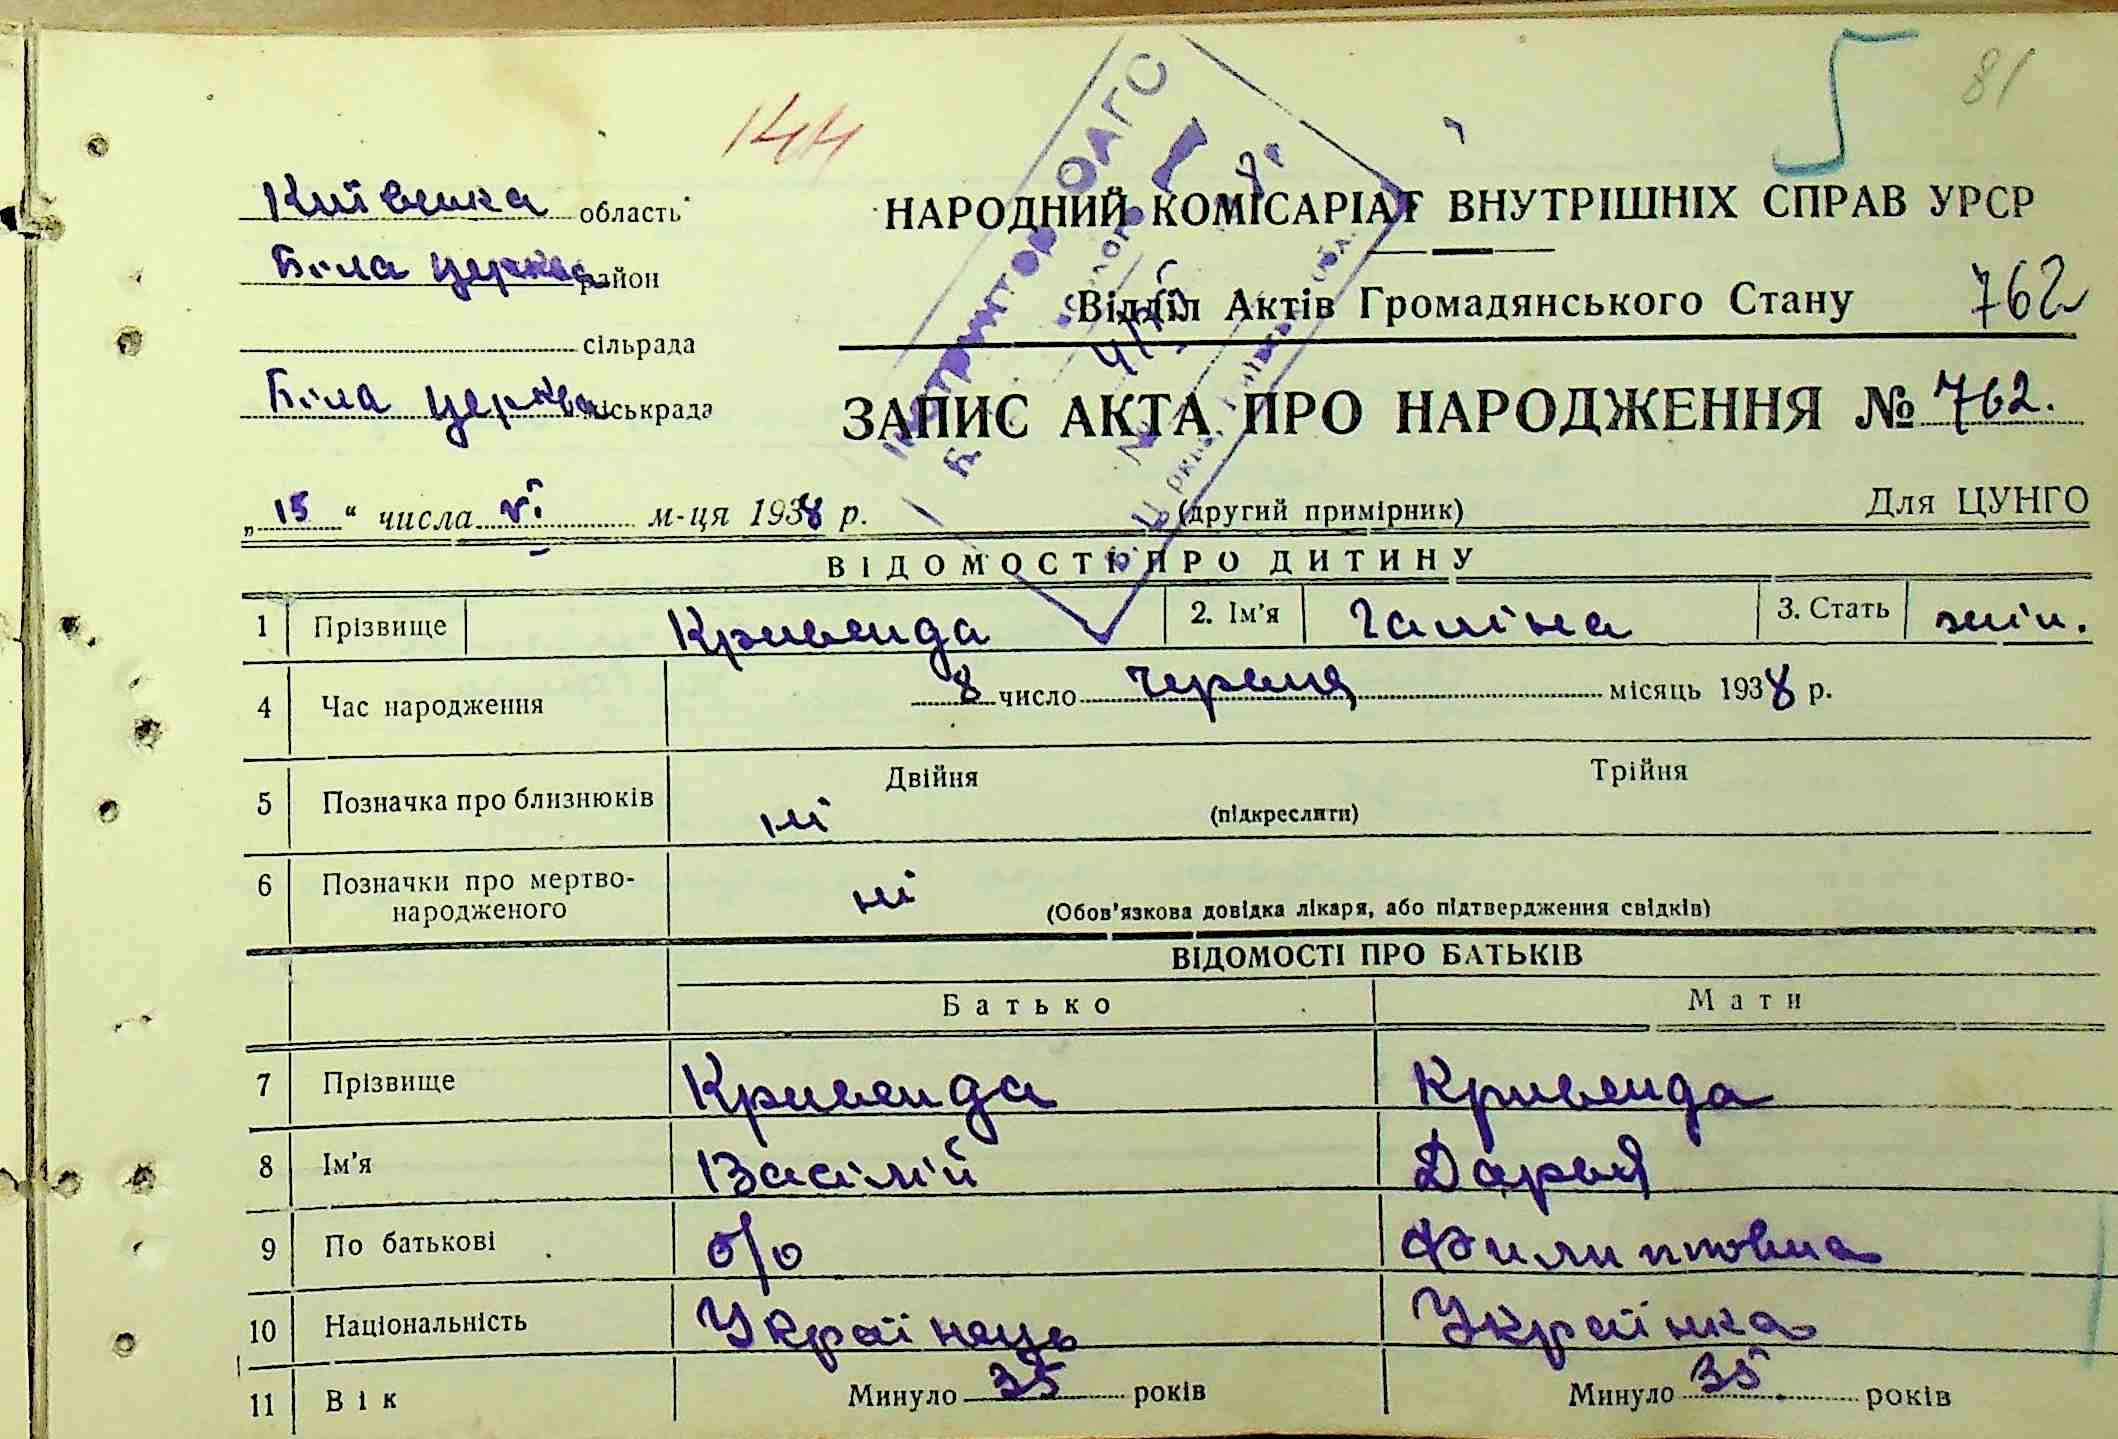 144
5
81
Київська область
Біла церква район
сільрада
Біла церква міськрада
НАРОДНИЙ КОМІСАРІАТ ВНУТРІШНІХ СПРАВ УРСР
Відділ Актів Громадянського Стану 762
ЗАПИС АКТА ПРО НАРОДЖЕННЯ № 762.
„15“ числа VI м-ця 1938 р.
(другий примірник)
Для ЦУНГО
ВІДОМОСТІ ПРО ДИТИНУ
1 Прізвище Кривенда 2. Ім'я Галіна 3. Стать жін.
4 Час народження 8 число червня місяць 1938 р.
5 Позначка про близнюків ні Двійня Трійня
(підкреслити)
6 Позначки про мертво-
народженого ні (Обов'язкова довідка лікаря, або підтвердження свідків)
ВІДОМОСТІ ПРО БАТЬКІВ
Батько Мати
7 Прізвище Кривенда Кривенда
8 Ім'я Васілій Дарья
9 По батькові б/о Филиповна
10 Національність Українець Українка
11 Вік Минуло 35 років Минуло 35 років